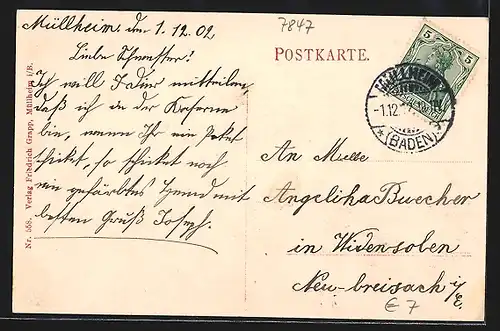 Müllheim, den 1.12.02
7847
Liebe Schwester!
POSTKARTE.
Ich will Dir mitteilen,
daß ich in der Kaserne
bin, wenn Ihr ein Paket
schicket, so schicket noch
ein gefärbtes Hemd mit
besten Gruß Joseph.
5 5
MÜLLHEIM
1.12.
* (BADEN) *
An Melle
Angelika Buecher
in Widensolen
Neu-breisach i/E.
€ 7
Nr. 558. Verlag Friedrich Grapp, Müllheim i/B.